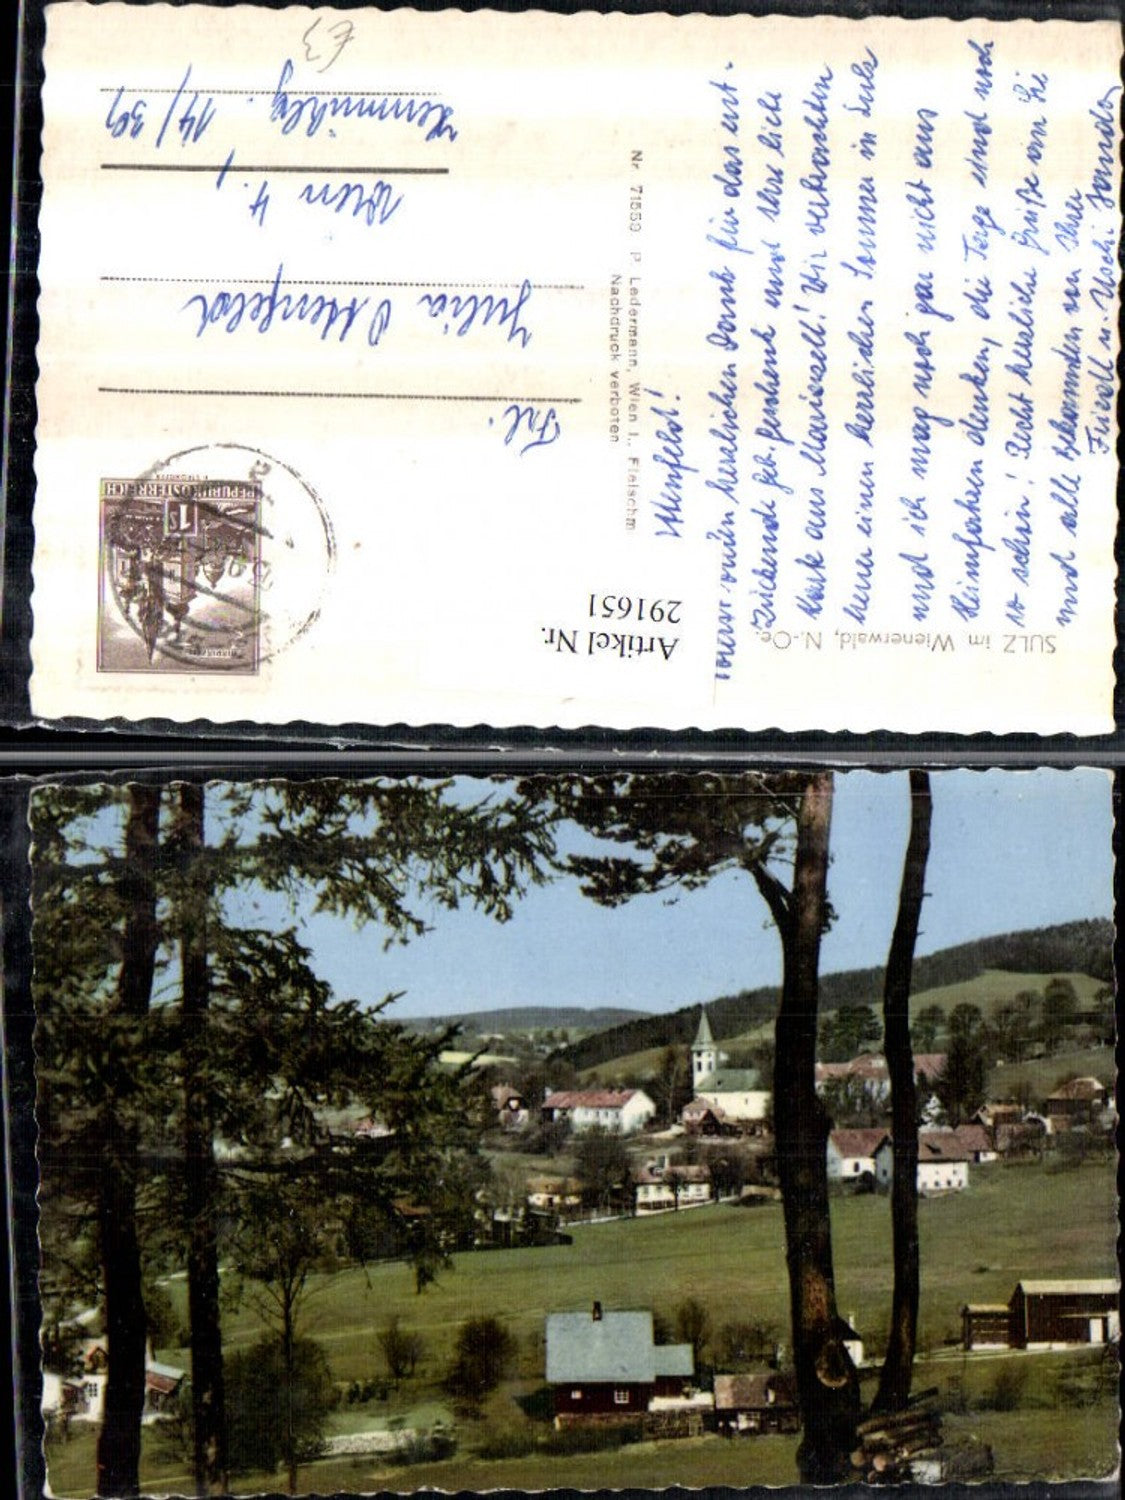 Ostenfeld!
unseren herzlichen Dank für das ent-
zückende geb. geschenk und Ihre liebe
Karte aus Mariazell! Wir verbrachten
heuer einen herrlichen Sommer in Sulz
und ich mag noch gar nicht ans
Heimfahren denken, die Tage sind noch
so schön! Recht herzliche Grüße an Sie
und alle Bekannten von Ihrer
Friedl u. Uschi
SULZ im Wienerwald, N.-Oe.
Nr. 71559 P. Ledermann, Wien I., Fleischm
Nachdruck verboten
Artikel Nr.
291651
REPUBLIK ÖSTERREICH
1 S
Frl.
Julia Ostenfeld
Wien 4.,
14/39
€3